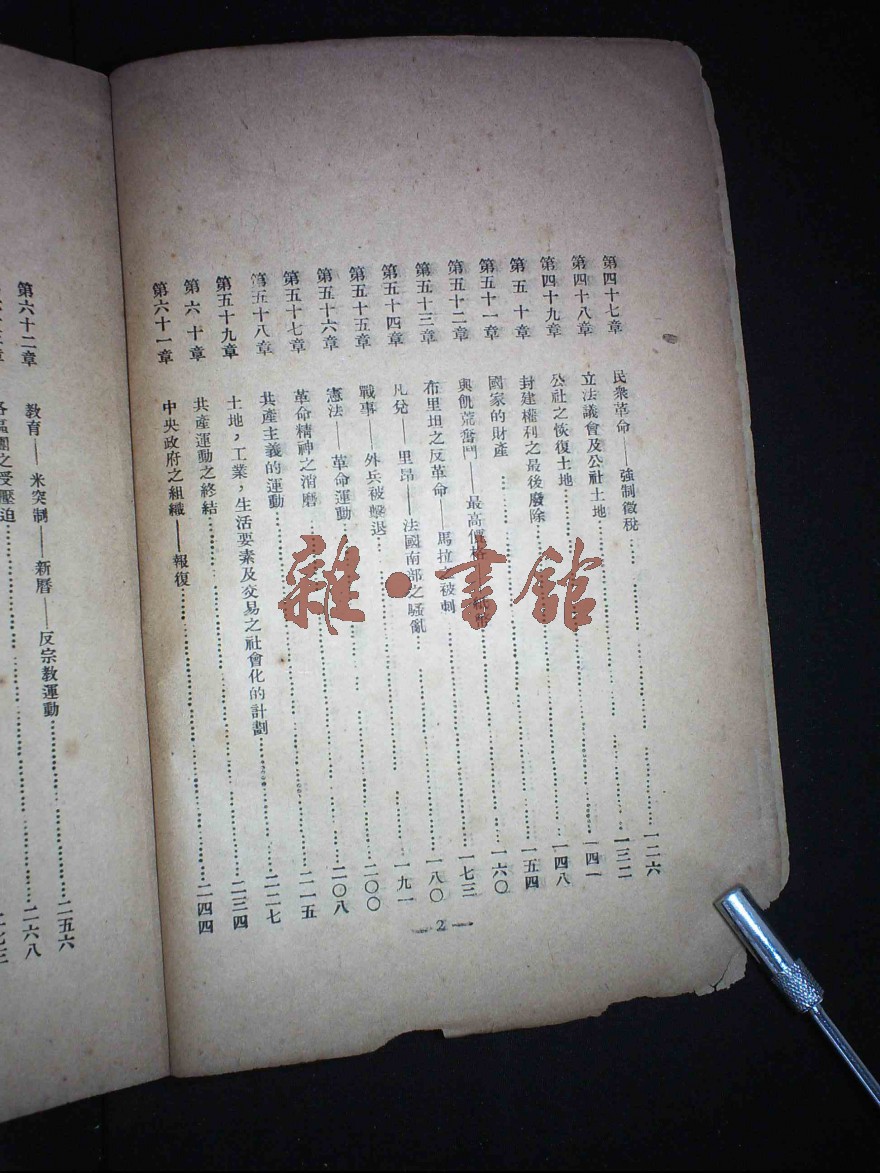 第四十七章 民衆革命——強制徵稅 一二六
第四十八章 立法議會及公社土地 一三二
第四十九章 公社之恢復土地 一四一
第五十章 封建權利之最後廢除 一四八
第五十一章 國家的財產 一五四
第五十二章 與飢荒奮鬥——最高價格 一六〇
第五十三章 布里坦之反革命——馬拉 被刺 一七三
第五十四章 凡兌——里昂——法國南部之騷亂 一八〇
第五十五章 戰事——外兵被擊退 一九一
第五十六章 憲法——革命運動 二〇〇
第五十七章 革命精神之消磨 二〇八
第五十八章 共產主義的運動 二一五
第五十九章 土地，工業，生活要素及交易之社會化的計劃 二二七
第六十章 共產運動之終結 二三四
第六十一章 中央政府之組織——報復 二四四
— 2 —
第六十二章 教育——米突制——新曆——反宗教運動 二五六
各區團之受壓迫 二六八
雜·書館